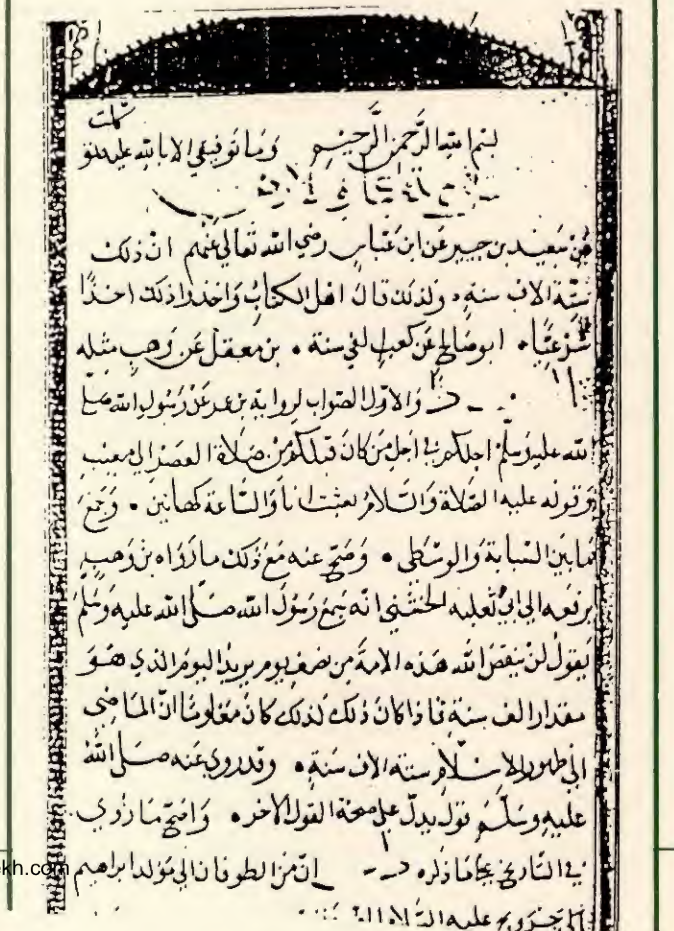 كملت
بسم الله الرحمن الرحيم وما توفيقي الا بالله عليه
عن سعيد بن جبير عن ابن عباس رضي الله تعالى عنهم ان ذلك
ستة الاف سنة، ولذلك قال اهل الكتاب واخذوا ذلك اخذا
ابو صالح عن كعب سنة • بن معقل عن وهب مثله
والاول الصواب لرواية بن عمر عن رسول الله صلى
الله عليه وسلم اجلكم في اجل من كان قبلكم من صلاة العصر الى مغيب
وقوله عليه الصلاة والسلام بعثت انا والساعة كهاتين • وجمع
مابين السبابة والوسطى • وصح عنه مع ذلك مارواه بن وهب
يرفعه الى ابي ثعلبه الخشني انه سمع رسول الله صلى الله عليه وسلم
يقول لن ينقص الله هذه الامة من نصف يوم يريد اليوم الذي هو
مقدار الف سنة فاذا كان ذلك لذلك كان معلوما ان الماضي
الى ظهور الاسلام ستة الاف سنة • وقد روي عنه صلى الله
عليه وسلم قول يدل على صحة القول الاخر • واصح ما روي
في التاريخ ماذكره ان من الطوفان الى مولد ابراهيم
عليه السلام
kh.com